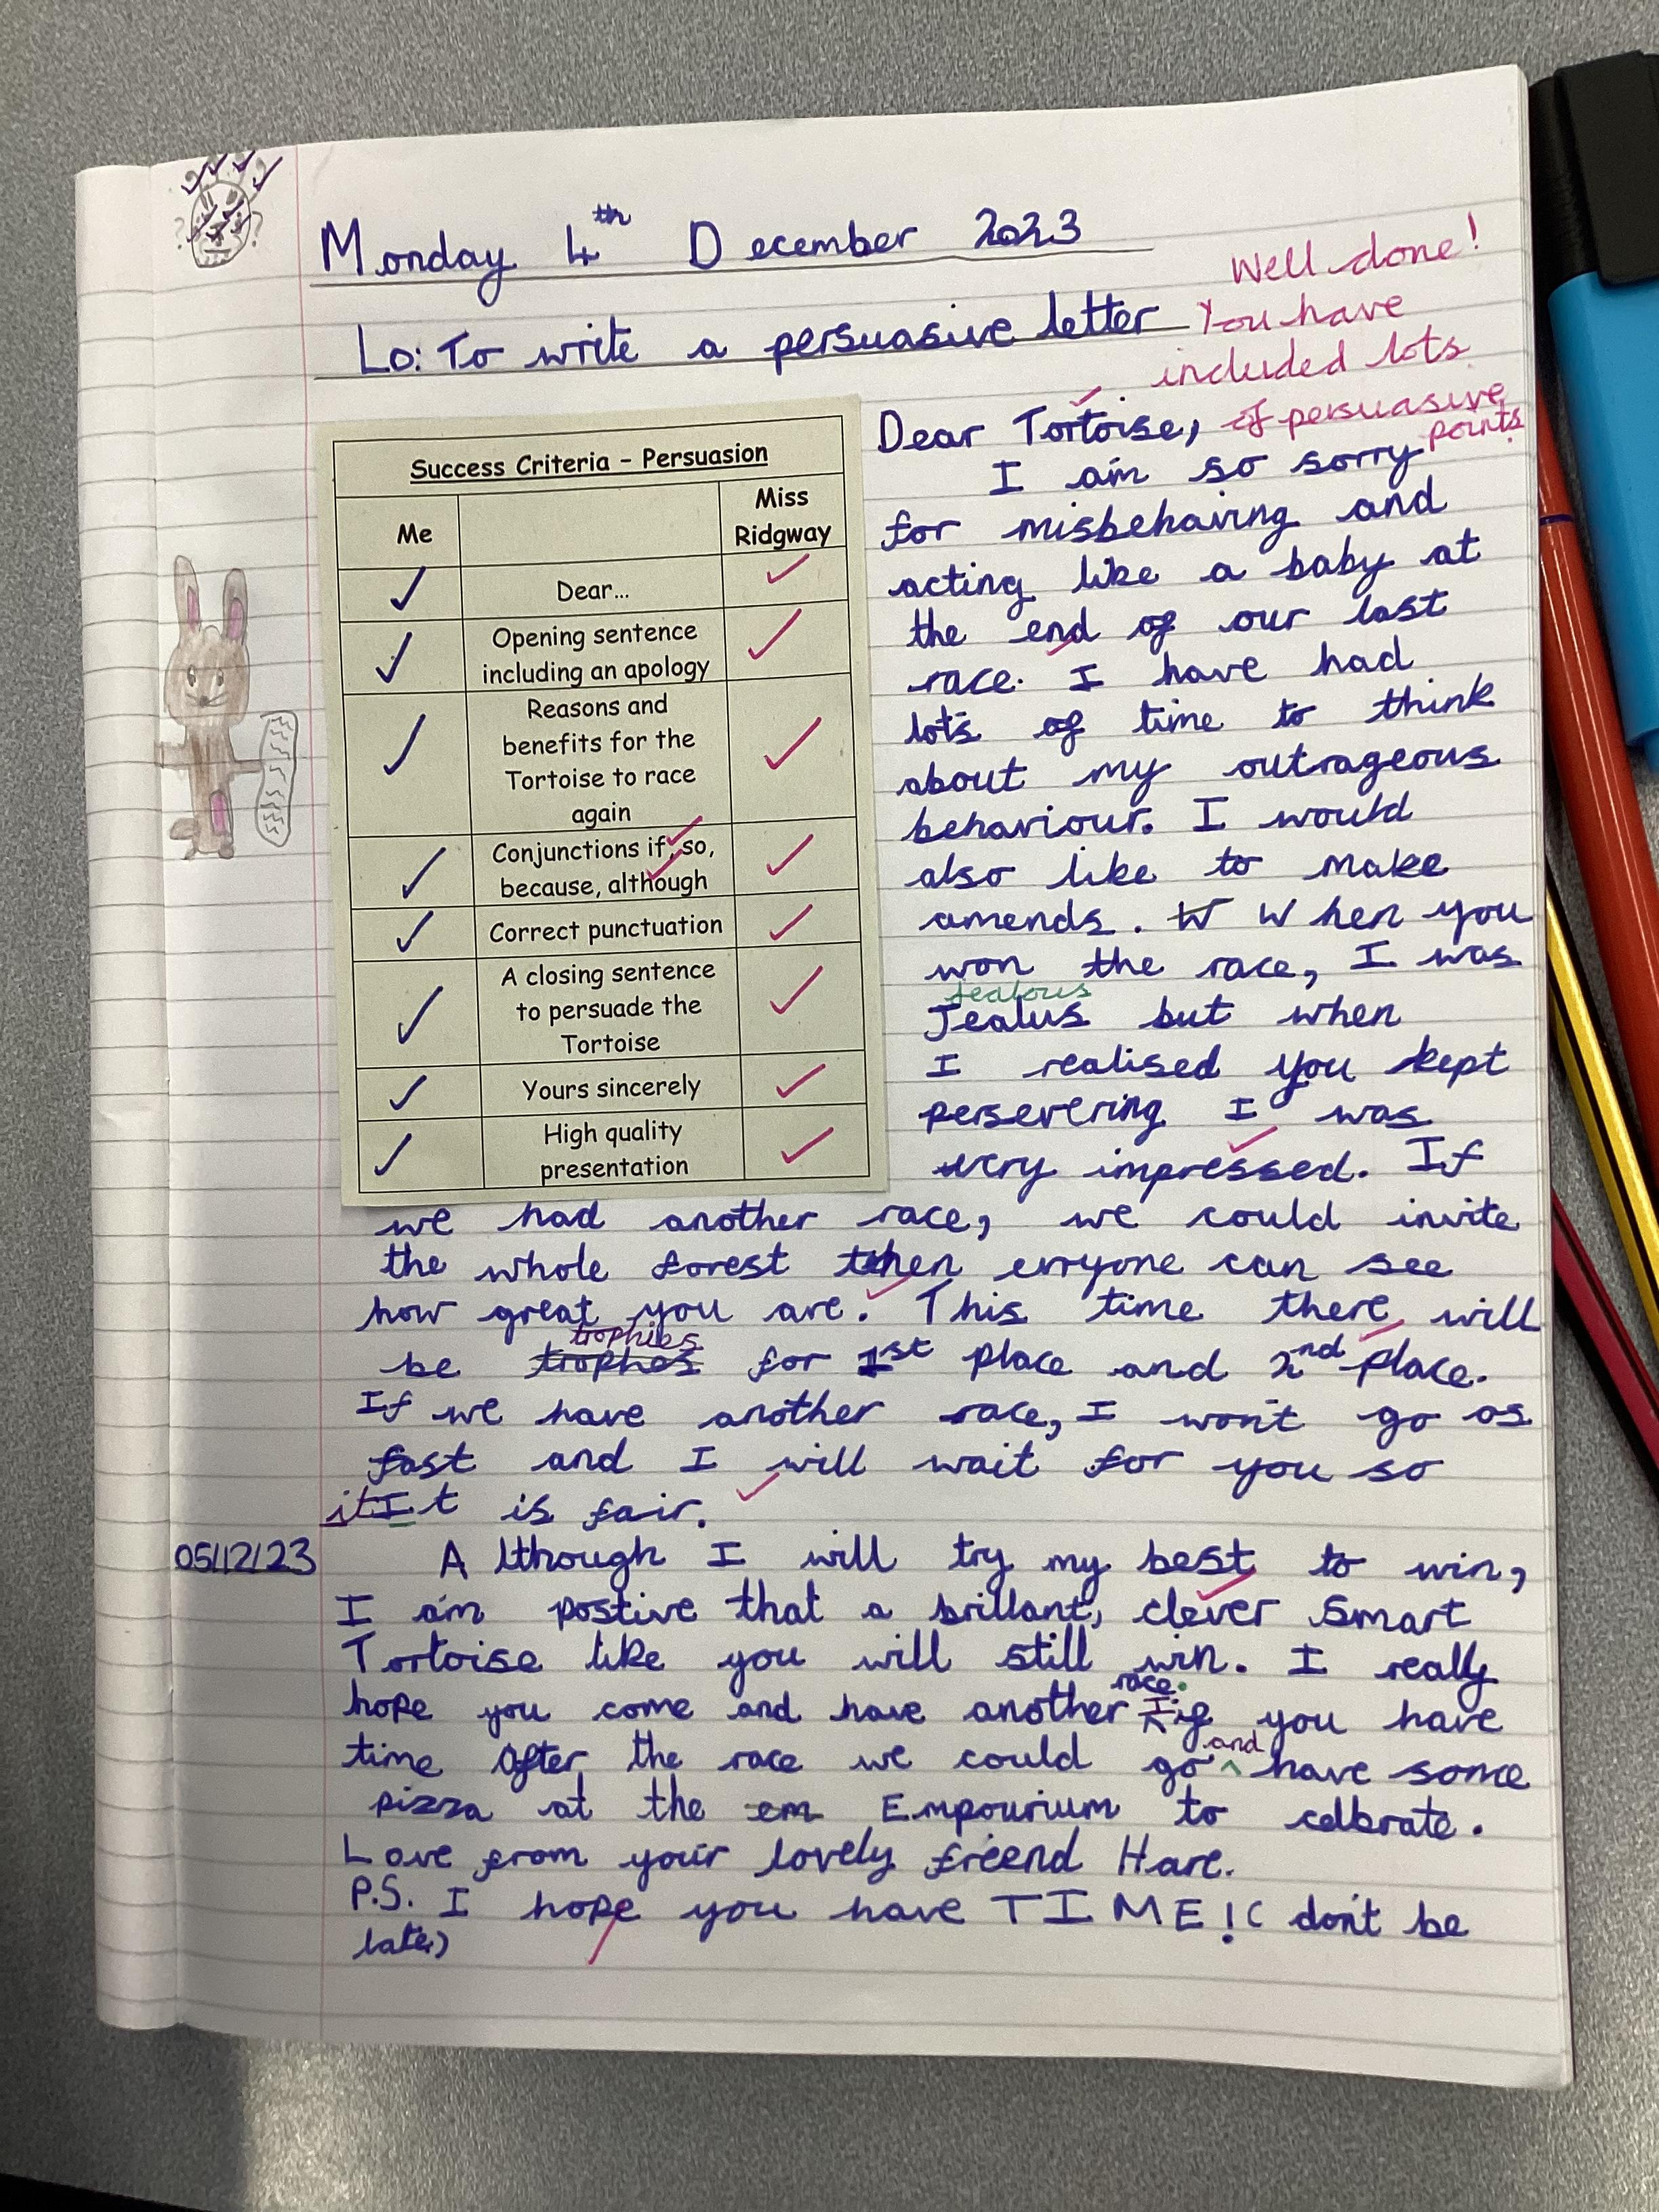 Monday 4th December 2023
Lo: To write a persuasive letter
Well done!
You have
included lots
of persuasive
points
Success Criteria – Persuasion
Me
Miss
Ridgway
Dear...
Opening sentence
including an apology
Reasons and
benefits for the
Tortoise to race
again
Conjunctions if, so,
because, although
Correct punctuation
A closing sentence
to persuade the
Tortoise
Yours sincerely
High quality
presentation
Dear Tortoise,
I am so sorry
for misbehaving and
acting like a baby at
the end of our last
race. I have had
lots of time to think
about my outrageous
behaviour. I would
also like to make
amends. W When you
won the race, I was
jealous
Jealus but when
I realised you kept
persevering I was
very impressed. If
we had another race, we could invite
the whole forest then erryone can see
how great you are. This time there will
trophies
be trophes for 1st place and 2nd place.
If we have another race, I won't go as
fast and I will wait for you so
it It is fair.
05/12/23
Although I will try my best to win,
I am postive that a brillant, clever smart
Tortoise like you will still win. I really
race.
hope you come and have another If you have
and
time after the race we could go ^ have some
pizza at the em Empourium to celbrate.
Love from your lovely freend Hare.
P.S. I hope you have TIME! ( don't be
late)